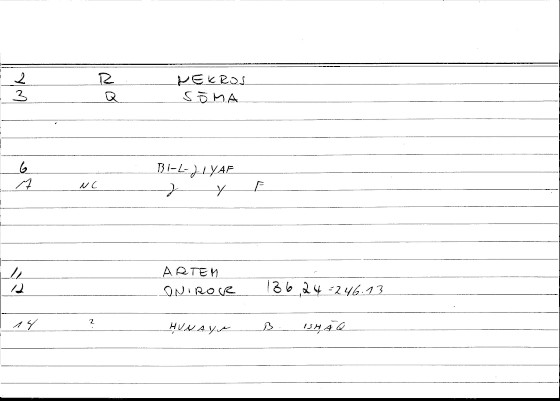 2 R NEKROS
3 Q SŌMA
6 BI-L-ʒIYAF
17 NC ʒ Y F
11 ARTEM
12 ONIROCR 136,24=246.13
14 ? ḤUNAYN B. ISḤĀQ